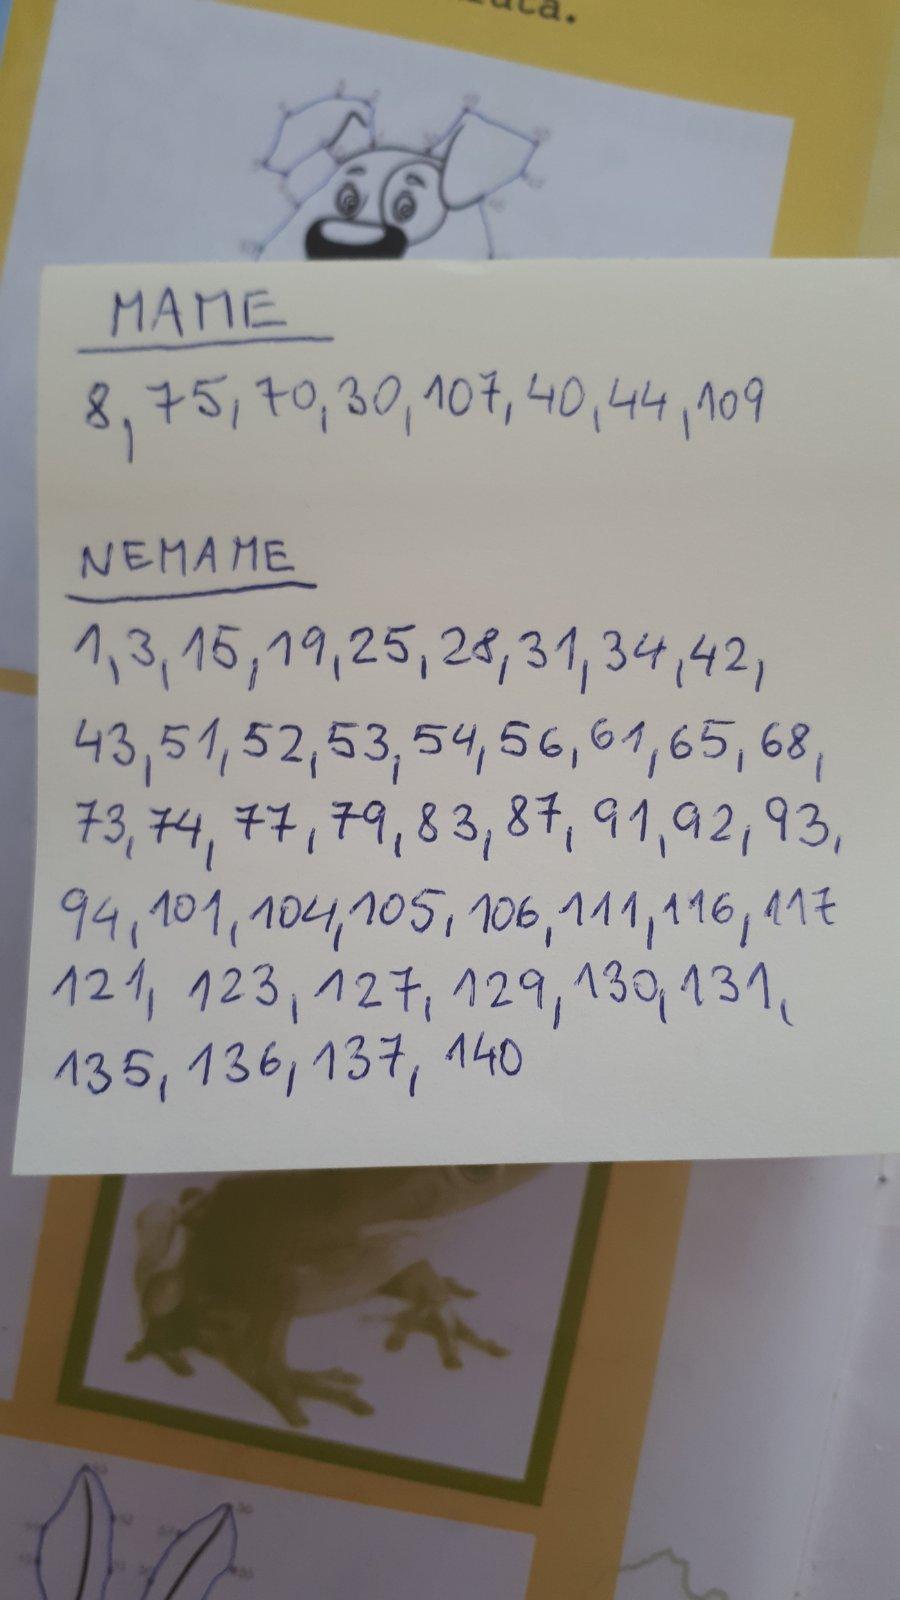 MAME
8, 75, 70, 30, 107, 40, 44, 109
NEMAME
1, 3, 15, 19, 25, 28, 31, 34, 42,
43, 51, 52, 53, 54, 56, 61, 65, 68,
73, 74, 77, 79, 83, 87, 91, 92, 93,
94, 101, 104, 105, 106, 111, 116, 117
121, 123, 127, 129, 130, 131,
135, 136, 137, 140